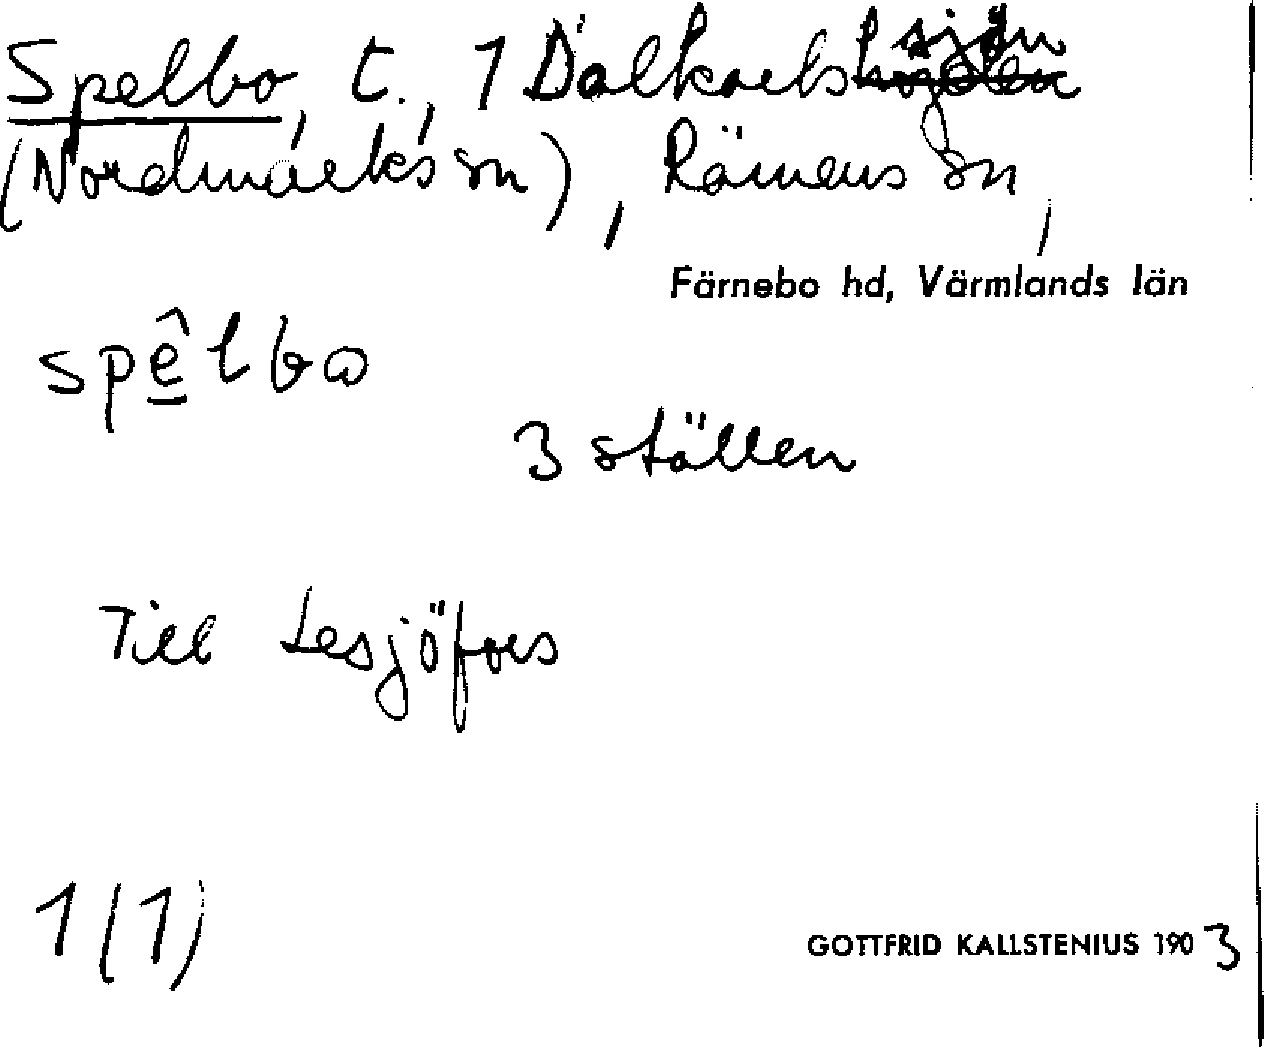 Spelbo, t., 1 Dalkarlssjön
(Nordmarks sn), Rämens sn,
Färnebo hd, Värmlands län
spê̲lbω
3 ställen
Till Lesjöfors
1(1)
GOTTFRID KALLSTENIUS 1903